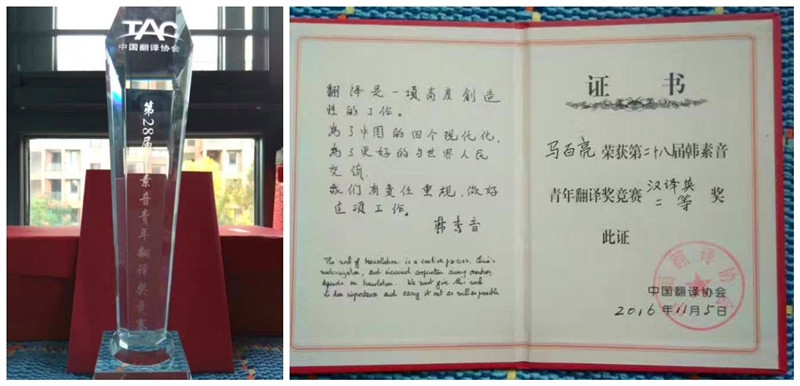 TAC
中国翻译协会
第28届韩素音青年翻译奖竞赛
翻译是一項高度創造
性的工作。
为了中国的四个现代化,
为了更好的与世界人民
交流,
我们有责任重视,做好
这项工作。
韩素音
The work of translation is a creative process. China's
modernization, and increased cooperation among countries
depends on translation. We must give this work
its due importance and carry it out as well as possible
证 书
马百亮 荣获第二十八届韩素音
青年翻译奖竞赛 汉译英 二等 奖
此证
中国翻译协会
2016年11月5日
中国翻译协会